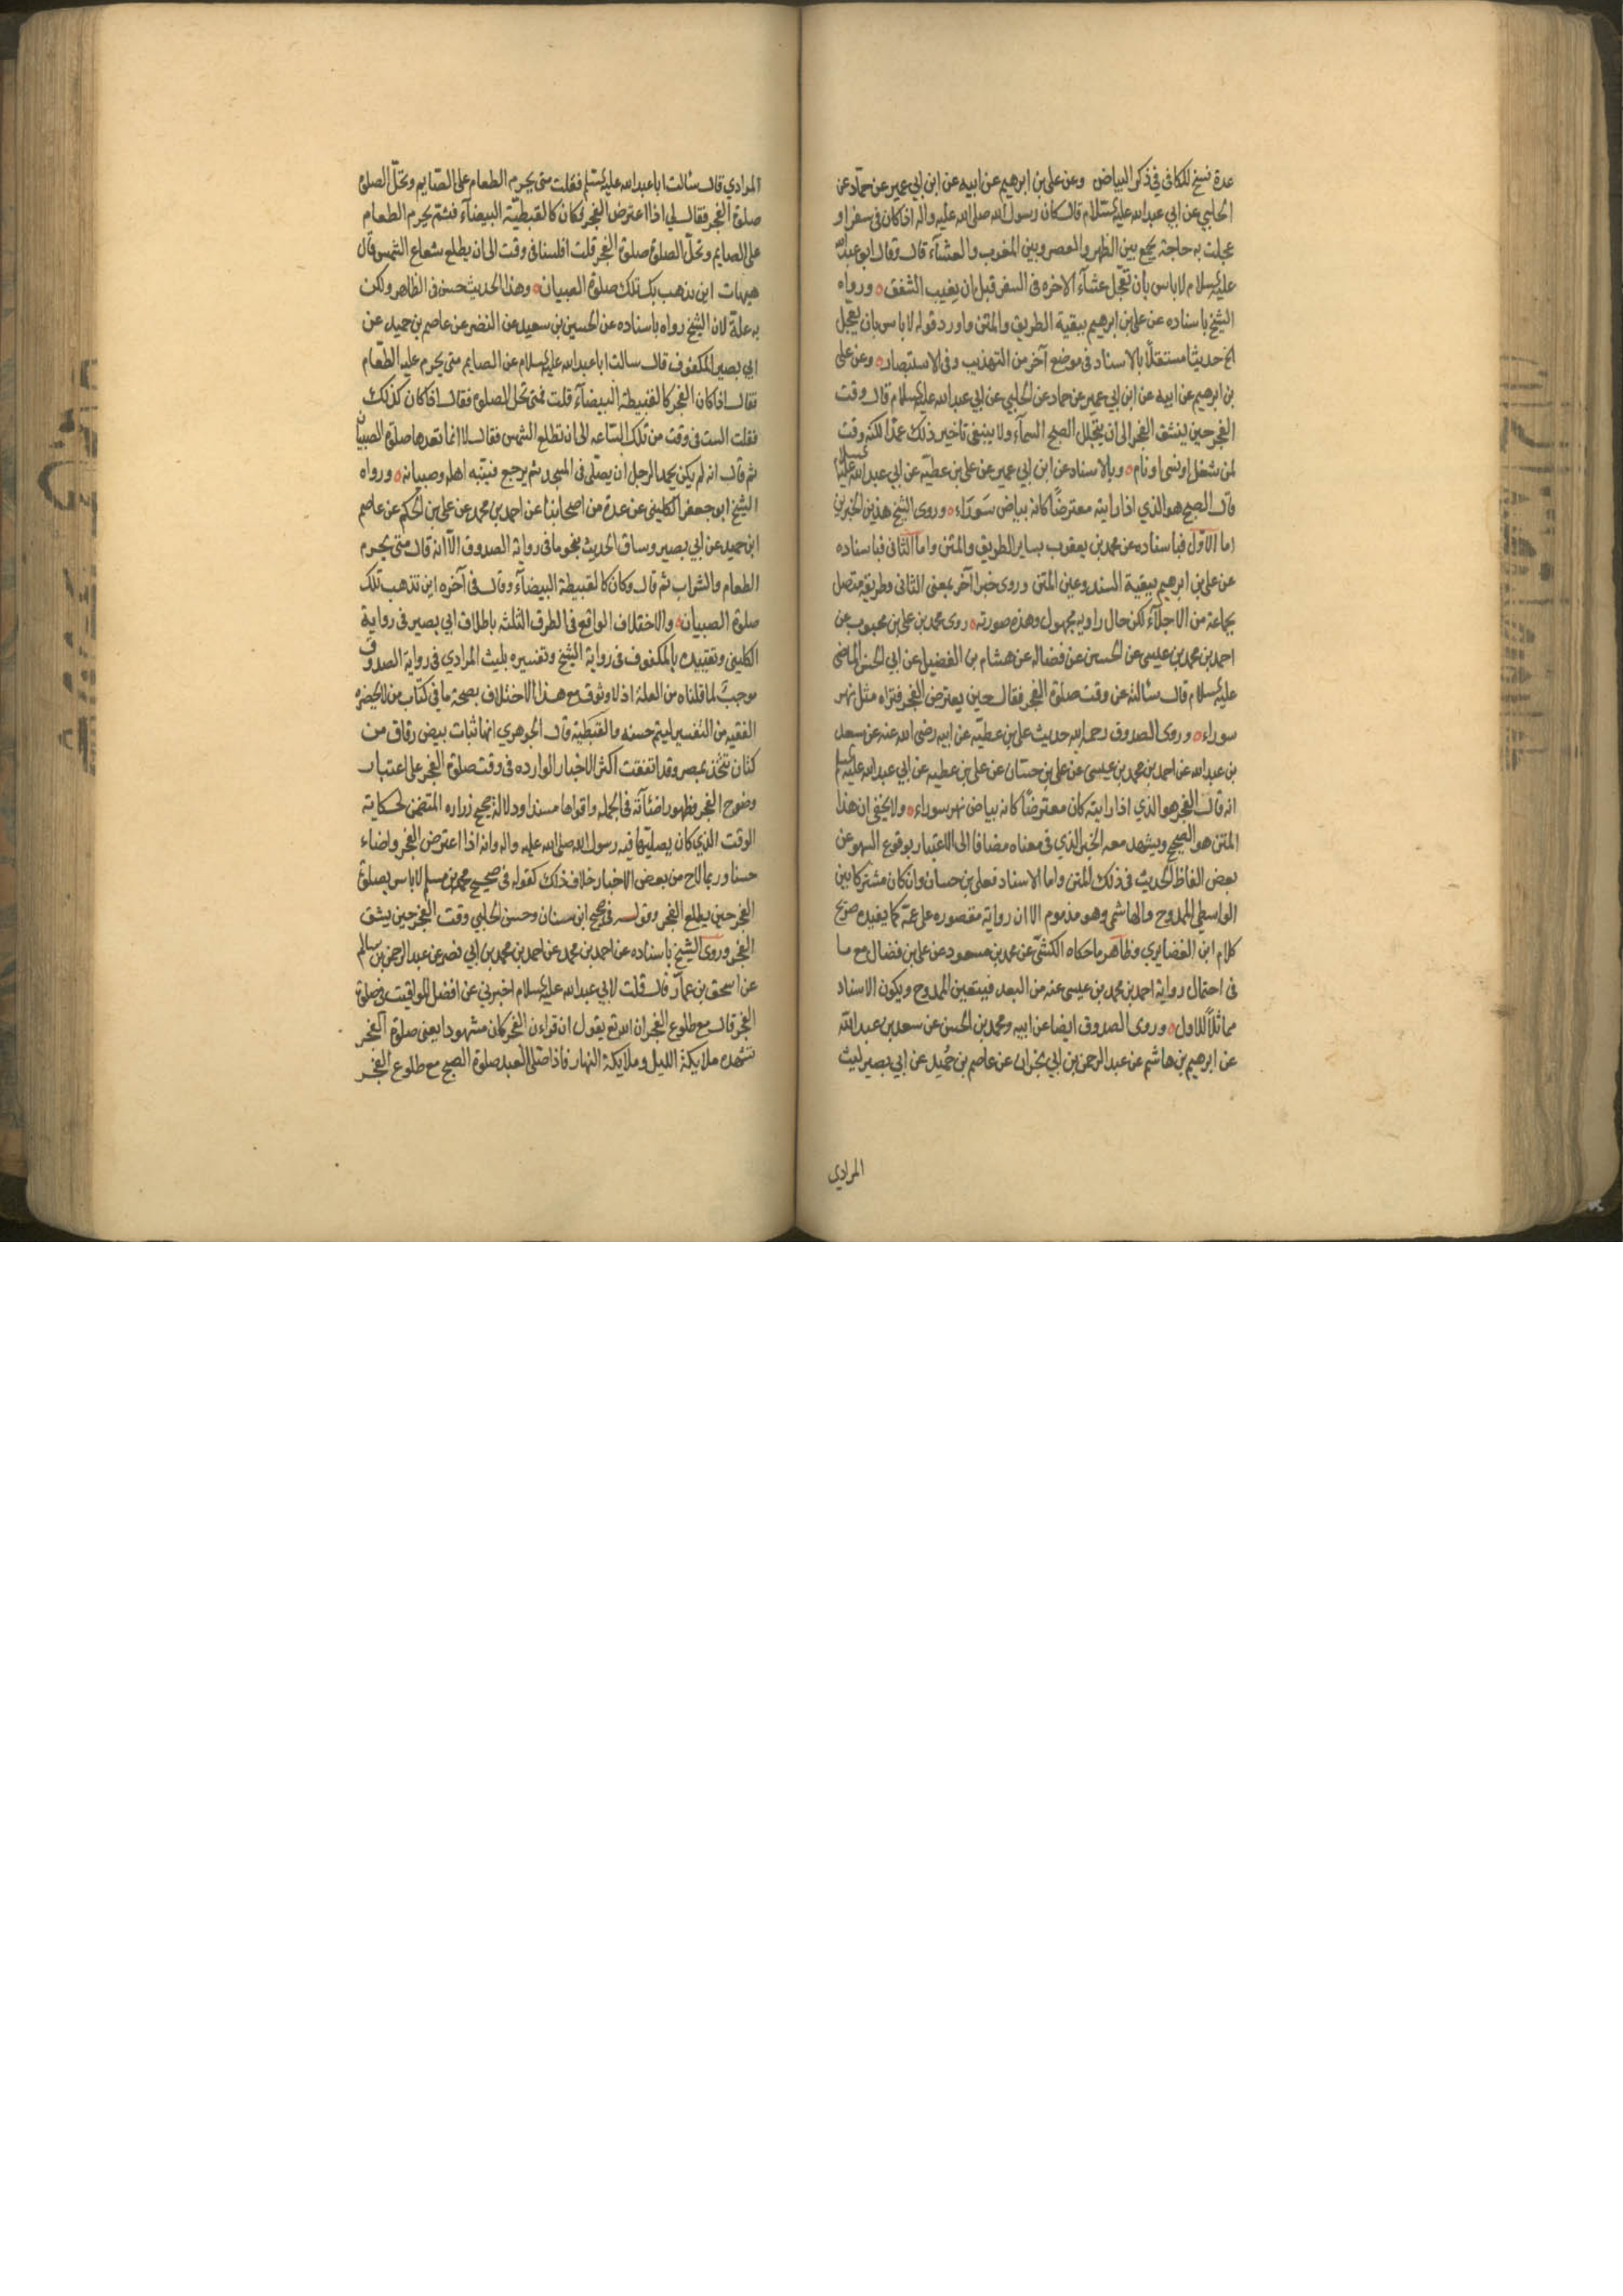 عدة نسخ للكافى فى ذكر البياض وعن على بن ابرهيم عن ابيه عن ابن ابي عمير عن حماد عن
الحلبي عن ابي عبدالله عليه السلام قال كان رسول الله صلى الله عليه واله اذا كان فى سفر او
عجلت به حاجة يجمع بين الظهر والعصر وبين المغرب والعشاء قال وقال ابو عبدالله
عليه السلام لا باس بان تعجل عشاء الاخره فى السفر قبل ان يغيب الشفق ٥ ورواه
الشيخ باسناده عن على بن ابرهيم ببقية الطريق والمتن واورد قوله لا باس بان يعجل
الخ حديثا مستقلا بالاسناد فى موضع آخر من التهذيب وفى الاستبصار ٥ وعن على
بن ابرهيم عن ابيه عن ابن ابي عمير عن حماد عن الحلبي عن ابي عبدالله عليه السلام قال وقت
الفجر حين ينشق الفجر الى ان يتجلل الصبح السماء ولا ينبغى تاخير ذلك عمدا لكنه وقت
لمن شغل او نسى او نام ٥ وبالاسناد عن ابن ابي عمير عن على بن عطية عن ابي عبدالله عليه السلام
قال الصبح هو الذي اذا رايته معترضا كانه بياض سوراء ٥ وروى الشيخ هذين الخبرين
اما الاول فباسناده عن محمد بن يعقوب بساير الطريق والمتن واما الثانى فباسناده
عن على بن ابرهيم ببقية السند وعين المتن وروى خبرا آخر بمعنى الثانى وطريقه متصل
بجماعة من الاجلاء لكن حال راويه مجهول وهذه صورته ٥ روى محمد بن على بن محبوب عن
احمد بن محمد بن عيسى عن الحسين عن فضاله عن هشام بن الفضيل عن ابي الحسن الماضى
عليه السلام قال سالته عن وقت صلوة الفجر فقال حين يعترض الفجر فتراه مثل نهر
سوراء ٥ وروى الصدوق رحمه الله حديث على بن عطية عن ابيه رضى الله عنه عن سعد
بن عبدالله عن احمد بن محمد بن عيسى عن على بن حسان عن على بن عطيه عن ابي عبدالله عليه السلام
انه قال الفجر هو الذي اذا رايته كان معترضا كانه بياض نهر سوراء ٥ ولا يخفى ان هذا
المتن هو الصحيح ويشهد معه الخبر الذي فى معناه مضافا الى الاعتبار بوقوع السهو عن
بعض الفاظ الحديث فى ذلك المتن واما الاسناد فعلى بن حسان وان كان مشتركا بين
الواسطى الممدوح والهاشمى وهو مذموم الا ان روايته مقصوره على عمه كما يفيده صريح
كلام ابن الغضايري وظاهر ما حكاه الكشى عن محمد بن مسعود عن على بن فضال مع ما
فى احتمال رواية احمد بن محمد بن عيسى عنه من البعد فيتعين الممدوح ويكون الاسناد
مماثلا للاول ٥ وروى الصدوق ايضا عن ابيه ومحمد بن الحسن عن سعد بن عبدالله
عن ابرهيم بن هاشم عن عبد الرحمن بن ابي نجران عن عاصم بن حميد عن ابي بصير ليث
المرادي
المرادي قال سالت ابا عبدالله عليه السلم فقلت متى يحرم الطعام على الصايم وتحل الصلوة
صلوة الفجر فقال لي اذا اعترض الفجر فكان كالقبطية البيضاء فثم يحرم الطعام
على الصايم وتحل الصلوة صلوة الفجر قلت افلسنا فى وقت الى ان يطلع شعاع الشمس قال
هيهات اين نذهب بك تلك صلوة الصبيان ٥ وهذا الحديث حسن فى الظاهر ولكن
به علة لان الشيخ رواه باسناده عن الحسين بن سعيد عن النضر عن عاصم بن حميد عن
ابي بصير المكفوف قال سالت ابا عبدالله عليه السلام عن الصايم متى يحرم عليه الطعام
فقال اذا كان الفجر كالقبيطة البيضاء قلت فمتى تحل الصلوة فقال اذا كان كذلك
فقلت الست فى وقت من تلك الساعه الى ان تطلع الشمس فقال لا انما تعدها صلوة الصبيان
ثم قال انه لم يكن يحمد الرجل ان يصلى فى المسجد ثم يرجع فينبه اهله وصبيانه ٥ ورواه
الشيخ ابو جعفر الكلينى عن عدة من اصحابنا عن احمد بن محمد عن على بن الحكم عن عاصم
ابن حميد عن ابي بصير وساق الحديث بنحو ما فى رواية الصدوق الا انه قال متى يحرم
الطعام والشراب ثم قال وكان كالقبيطة البيضاء وقال فى آخره اين تذهب تلك
صلوة الصبيان ٥ والاختلاف الواقع فى الطرق الثلثه باطلاق ابي بصير فى رواية
الكلينى وتقييده بالمكفوف فى رواية الشيخ وتفسيره بليث المرادي فى رواية الصدوق
موجب لما قلناه من العلة اذ لا وثوق مع هذا الاختلاف بصحة ما فى كتاب من لا يحضره
الفقيه من التفسير ليتم حسنه والقبطية قال الجوهري انها ثياب بيض رقاق من
كتان تتخذ بمصر وقد اتفقت اكثر الاخبار الوارده فى وقت صلوة الفجر على اعتبار
وضوح الفجر وظهور اضائته فى الجمله واقواها سندا ودلالة صحيح زراره المتضمن لحكاية
الوقت الذي كان يصليها فيه رسول الله صلى الله عليه واله وانه اذا اعترض الفجر واضاء
حسنا وربما لاح من بعض الاخبار خلاف ذلك كقوله فى صحيح محمد بن مسلم لا باس بصلوة
الفجر حين يطلع الفجر وقوله فى صحيح ابن سنان وحسن الحلبي وقت الفجر حين ينشق
الفجر وروى الشيخ باسناده عن احمد بن محمد عن احمد بن محمد بن ابي نصر عن عبد الرحمن بن سالم
عن اسحق بن عمار قال قلت لابي عبدالله عليه السلام اخبرني عن افضل المواقيت فى صلوة
الفجر قال مع طلوع الفجر ان الله تع يقول ان قراءن الفجر كان مشهودا يعنى صلوة الفجر
تشهده ملايكة الليل وملايكة النهار فاذا صلى العبد صلوة الصبح مع طلوع الفجر